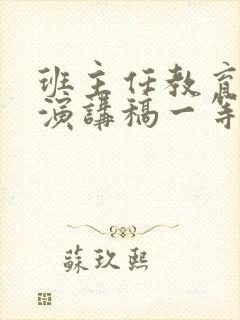 班主任教育
演講稿一等
蘇玖熙